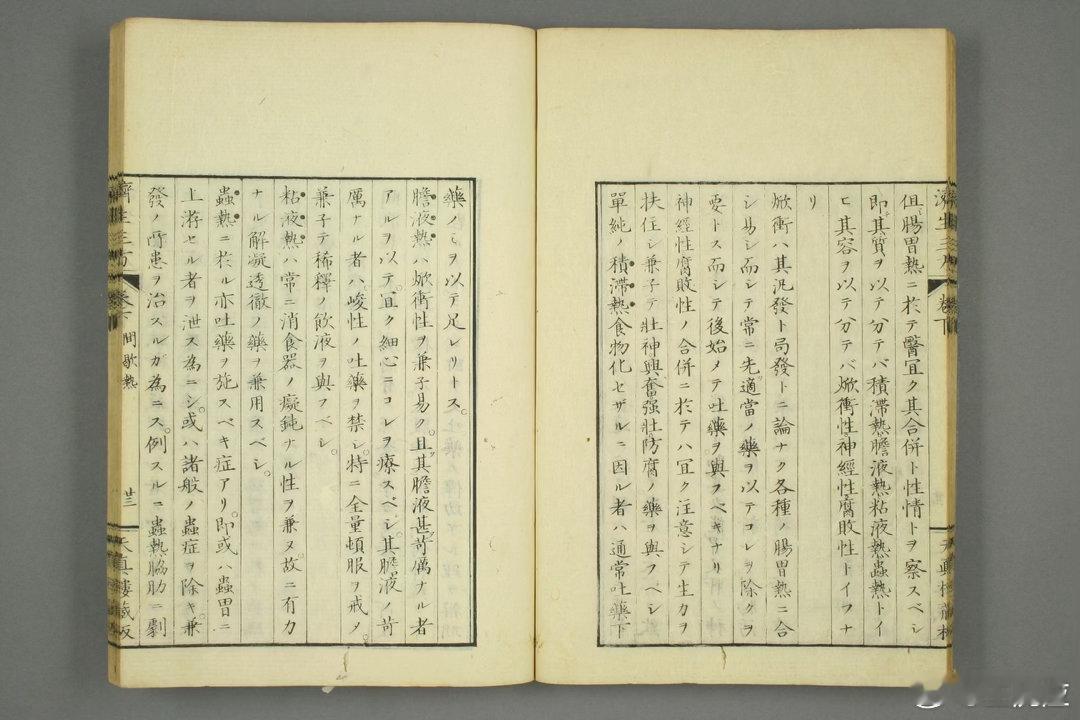 但腸胃熱ニ於テ醫宜ク其合併ト性情トヲ察スベシ
即其質ヲ以テ分テバ積滯熱膽液熱粘液熱蟲熱トイ
ヒ其容ヲ以テ分テバ焮衝性神經性腐敗性トイフナ
リ
焮衝ハ其汎發ト局發トニ論ナク各種ノ腸胃熱ニ合
シ易シ而シテ常ニ先適當ノ藥ヲ以テコレヲ除クヲ
要トス而シテ後始メテ吐藥ヲ與フベキナリ
神經性腐敗性ノ合併ニ於テハ宜ク注意シテ生力ヲ
扶住シ兼子テ壯神興奮强壯防腐ノ藥ヲ與フベシ
單純ノ積滯熱食物化セザルニ因ル者ハ通常吐藥下
濟生三方 卷下
天眞樓藏板
藥ノミヲ以テ足レリトス。
膽液熱ハ焮衝性ヲ兼子易ク且其膽液甚苛厲ナル者
アルヲ以テ宜ク細心ニコレヲ療スベシ其膽液ノ苛
厲ナル者ハ峻性ノ吐藥ヲ禁シ特ニ全量頓服ヲ戒メ。
兼子テ稀釋ノ飲液ヲ與フベシ。
粘液熱ハ常ニ消食器ノ癡鈍ナル性ヲ兼ヌ故ニ有力
ナル解凝透徹ノ藥ヲ兼用スベシ。
蟲熱ニ於ル亦吐藥ヲ施スベキ症アリ。即或ハ蟲胃ニ
上游セル者ヲ泄ス為ニシ。或ハ諸般ノ蟲症ヲ除キ。兼
發ノ所患ヲ治スルガ為ニス。例スルニ蟲熱脇肋ニ劇
濟生三方 卷下 間歇熱 廿三 天眞樓藏板